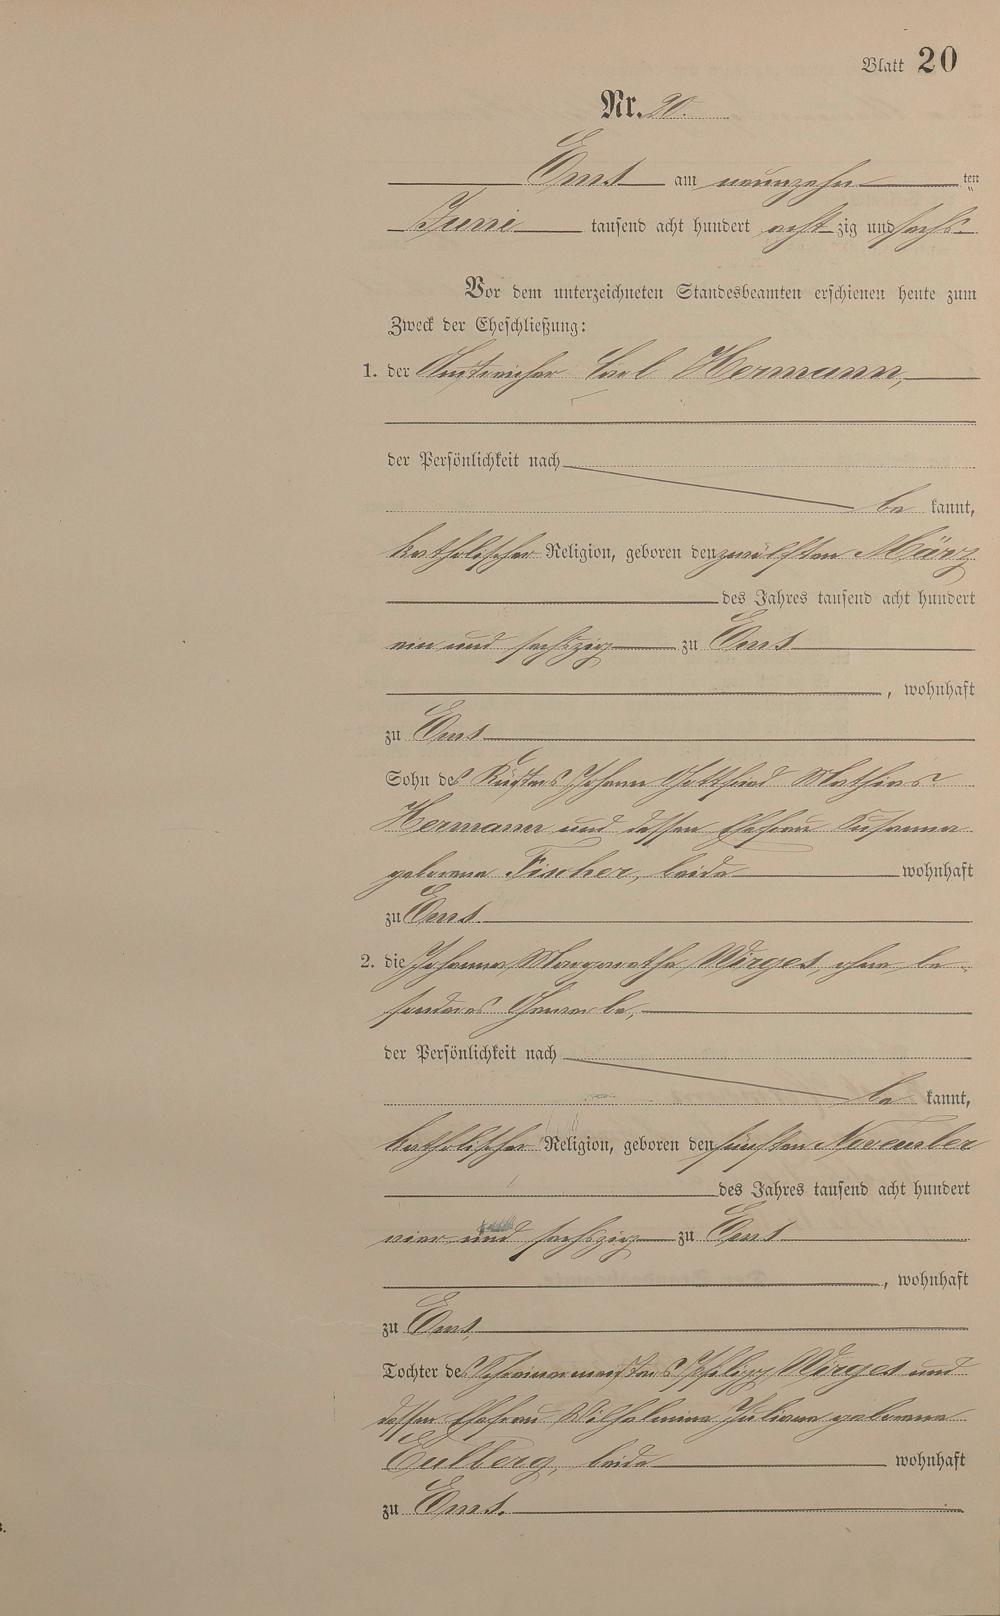 Blatt 20
Nr. 20.
Ems am neunzehn ten
Juni tausend acht hundert acht zig und sechs.
Vor dem unterzeichneten Standesbeamten erschienen heute zum
Zweck der Eheschließung:
1. der Carl Hermann,
der Persönlichkeit nach
be kannt,
katholischer Religion, geboren den zwölften März
des Jahres tausend acht hundert
ein und sechszig zu Ems
, wohnhaft
zu Ems
Sohn des Küsters Johann Gottfried Mathias
Hermann und dessen Ehefrau Susanna
geborene Fischer, beide wohnhaft
zu Ems.
2. die Johanna Margaretha Wirges, ohne be-
sonderes Gewerbe,
der Persönlichkeit nach
be kannt,
katholischer Religion, geboren den fünften November
des Jahres tausend acht hundert
vier und sechszig zu Ems
, wohnhaft
zu Ems,
Tochter des Schreinermeisters Philipp Wirges und
dessen Ehefrau Wilhelmine Juliane geborene
Eulberg, beide wohnhaft
zu Ems.